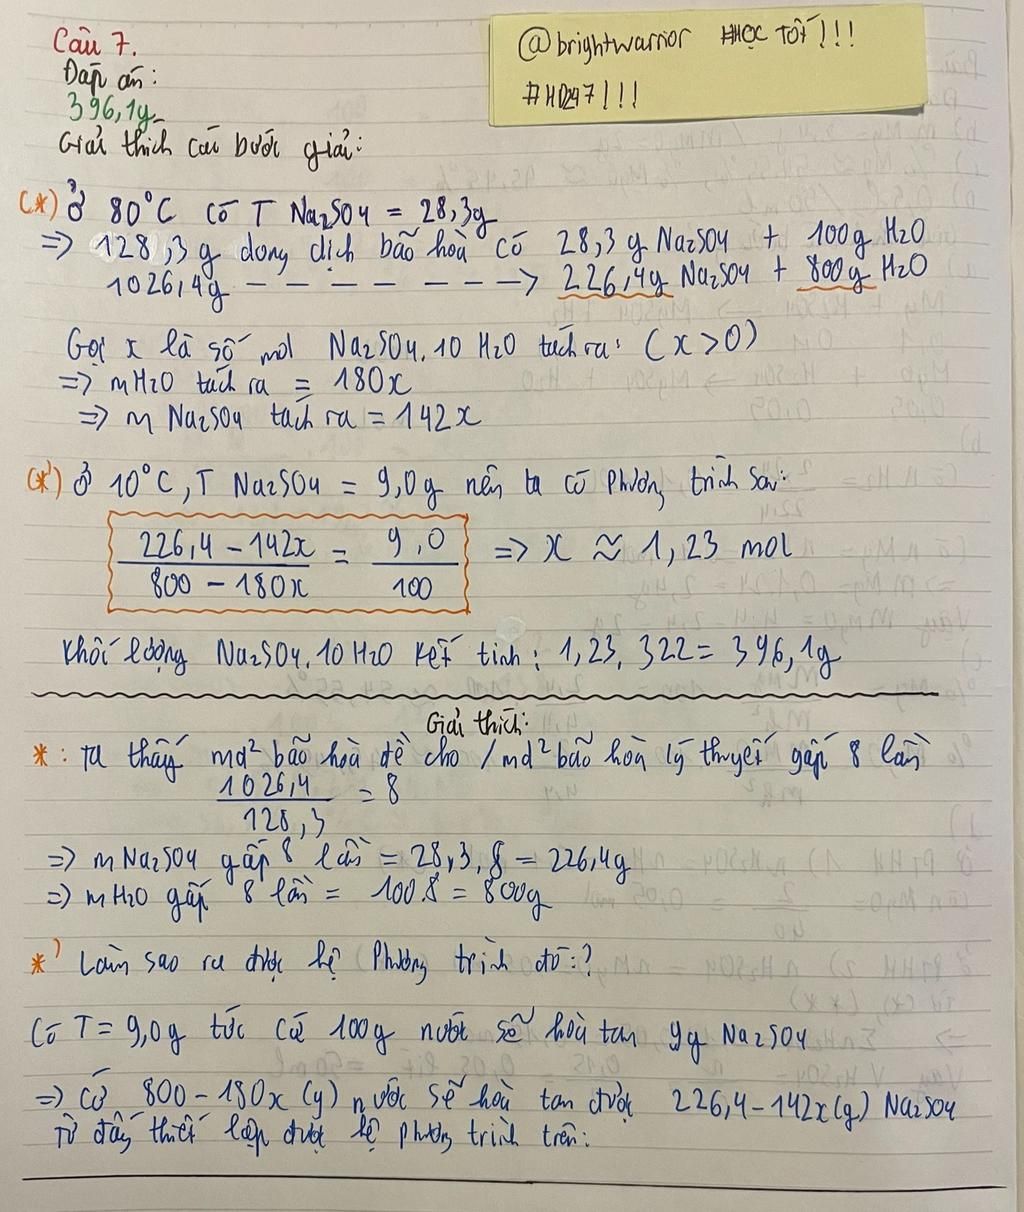 Câu 7.
Đáp án:
396,1g
Giải thích các bước giải:
@brightwarrior HỌC TỐT!!!
#HD247!!!
(*) Ở 80°C có T Na2SO4 = 28,3g
=> 128,3 g dung dịch bão hoà có 28,3 g Na2SO4 + 100g H2O
1026,4g - - - - - - -> 226,4g Na2SO4 + 800g H2O
Gọi x là số mol Na2SO4.10 H2O tách ra: (x>0)
=> mH2O tách ra = 180x
=> m Na2SO4 tách ra = 142x
(*') Ở 10°C, T Na2SO4 = 9,0g nên ta có phương trình sau:
226,4 - 142x / 800 - 180x = 9,0 / 100 => x ≈ 1,23 mol
Khối lượng Na2SO4.10H2O kết tinh: 1,23.322 = 396,1g
Giải thích:
*: Ta thấy md² bão hoà đề cho / md² bão hoà lý thuyết gấp 8 lần
1026,4 / 128,3 = 8
=> mNa2SO4 gấp 8 lần = 28,3.8 = 226,4g
=> mH2O gấp 8 lần = 100.8 = 800g
*' Làm sao ra được hệ phương trình đó:?
Có T = 9,0g tức cứ 100g nước sẽ hoà tan 9g Na2SO4
=> Cứ 800 - 180x (g) nước sẽ hoà tan được 226,4 - 142x(g) Na2SO4
Từ đấy thiết lập được hệ phương trình trên: